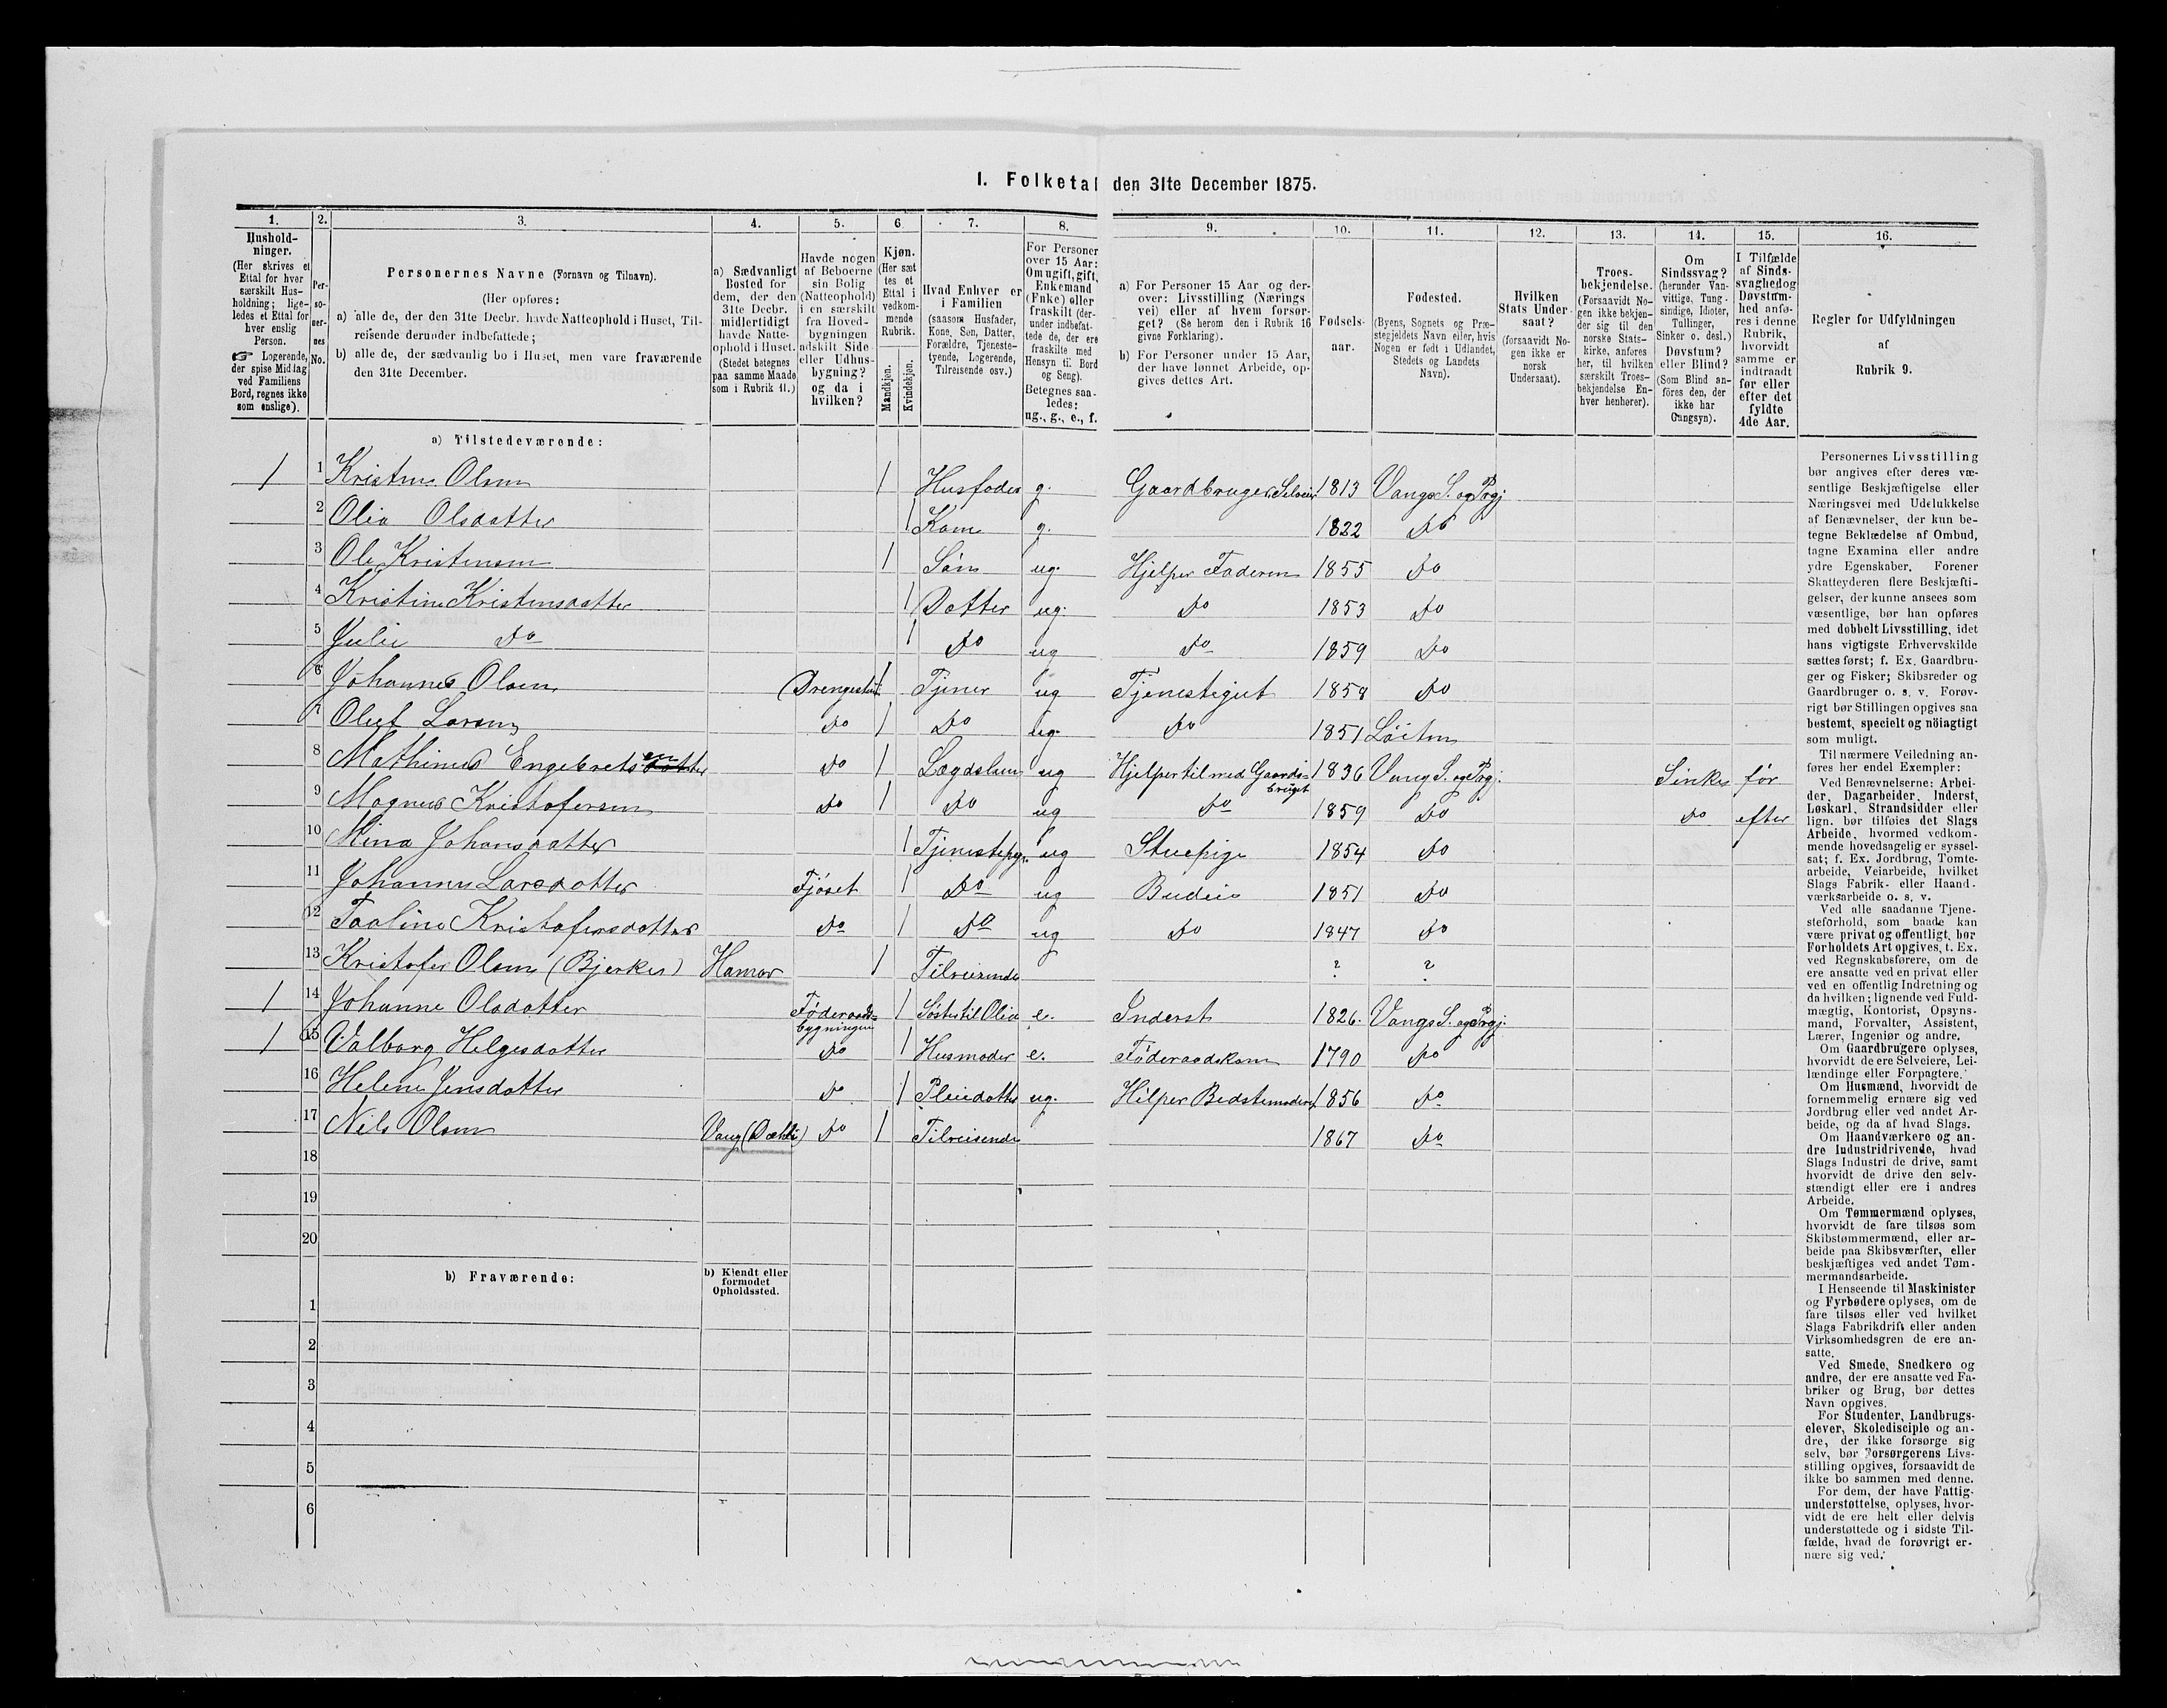 1. Folketal den 31te December 1875.
1. 2. 3. 4. 5. 6 7. 8. 9. 10. 11. 12. 13. 14. 15. 16.
Hushold-
ninger.
(Her skrives et
Ettal for hver
særskilt Hus-
holdning; lige-
ledes et Ettal for
hver enslig
Person.
☞ Logerende,
der spise Middag
ved Familiens
Bord, regnes ikke
som enslige).
Per-
so-
ner-
nes
No.
Personernes Navne (Fornavn og Tilnavn).
(Her opføres:
a) alle de, der den 31te Decbr. havde Natteophold i Huset, Til-
reisende derunder indbefattede;
b) alle de, der sædvanlig bo i Huset, men vare fraværende
den 31te December.
a) Sædvanligt
Bosted for
dem, der den
31te Decbr.
midlertidigt
havde Natte-
ophold i Huset.
(Stedet betegnes
paa samme Maade
som i Rubrik 11.)
Havde nogen
af Beboerne
sin Bolig
(Natteophold)
i en særskilt
fra Hoved-
bygningen
adskilt Side-
eller Udhus-
bygning?
og da i
hvilken?
Kjøn.
(Her sæt
tes et
Ettal i
vedkom-
mende
Rubrik.
Mandkjøn.
Kvindekjøn.
Hvad Enhver er
i Familien
(saasom Husfader,
Kone, Søn, Datter,
Forældre, Tjeneste-
tyende, Logerende,
Tilreisende osv.)
For Personer
over 15 Aar:
Om ugift, gift,
Enkemand
(Enke) eller
fraskilt (der-
under indbefat-
tede de, der ere
fraskilte med
Hensyn til Bord
og Seng).
Betegnes saa-
ledes:
ug., g., e., f.
a) For Personer 15 Aar og der-
over: Livsstilling (Nærings
vei) eller af hvem forsør-
get? (Se herom den i Rubrik 16
givne Forklaring).
b) For Personer under 15 Aar,
der have lønnet Arbeide, op-
gives dettes Art.
Fødsels-
aar.
Fødested.
(Byens, Sognets og Præ-
stegjeldets Navn eller, hvis
Nogen er født i Udlandet,
Stedets og Landets
Navn).
Hvilken
Stats Under-
saat?
(forsaavidt No-
gen ikke er
norsk
Undersaat).
Troes-
bekjendelse.
(Forsaavidt No-
gen ikke bekjen-
der sig til den
norske Stats-
kirke, anføres
her, til hvilken
særskilt Troes-
bekjendelse En-
hver henhører).
Om
Sindssvag?
(herunder Van-
vittige, Tung-
sindige, Idioter,
Tullinger,
Sinker o. desl.)
Døvstum?
eller Blind?
(Som Blind an-
føres den, der
ikke har
Gangsyn).
I Tilfælde
af Sinds-
svaghed og
Døvstum-
hed anfø-
res i denne
Rubrik,
hvorvidt
samme er
indtraadt
før eller
efter det
fyldte
4de Aar.
Regler for Udfyldningen
af
Rubrik 9.
a) Tilstedeværende:
1 1 Kristen Olsen 1 Husfader g. Gaardbruger Selveier 1813 Vangs S. og Prgj.
2 Olia Olsdatter 1 Kone g. 1822 Do
3 Ole Kristensen 1 Søn ug. Hjelper Faderen 1855 Do
4 Kristine Kristensdatter 1 Datter ug. Do 1853 Do
5 Julie Do 1 Do ug Do 1859 Do
6 Johannes Olsen Drengestuen 1 Tjener ug Tjenestegut 1858 Do
7 Oluf Larsen Do 1 Do ug. Do 1851 Løiten
8 Mathinus Engebretsen Do 1 Lægdslem ug Hjelper til med Gaards-
bruget 1836 Vang S. og Prgj. Sinke før
9 Magnus Kristofersen Do 1 Do ug Do 1859 Do Do efter
10 Mina Johansdatter 1 Tjenestepige ug Stuepige 1854 Do
11 Johanne Larsdatter Fjøset 1 Do ug Budeie 1851 Do
12 Taaline Kristofersdatter Do 1 Do ug Do 1847 Do
13 Kristofer Olsen (Bjerke) Hamar 1 Tilreisende ? ?
1 14 Johanne Olsdatter Føderaads-
bygningen 1 Søster til Olia e. Inderst 1826. Vangs S. og Prgj.
1 15 Valborg Helgesdatter Do 1 Husmoder e. Føderaadskone 1790 Do
16 Helene Jensdatter Do 1 Pleiedatter ug. Hilper Bedstemoderen 1856 Do
17 Nils Olsen Vang (Dæhli) Do 1 Tilreisende 1867 Do
18
19
20
b) Fraværende:
b) Kjendt eller
formodet
Opholdssted.
1
2
3
4
5
6
Personernes Livsstilling
bør angives efter deres væ-
sentlige Beskjæftigelse eller
Næringsvei med Udelukkelse
af Benævnelser, der kun be-
tegne Beklædelse af Ombud,
tagne Examina eller andre
ydre Egenskaber. Forener
Skatteyderen flere Beskjæfti-
gelser, der kunne ansees som
væsentlige, bør han opføres
med dobbelt Livsstilling, idet
hans vigtigste Erhvervskilde
sættes først; f. Ex. Gaardbru-
ger og Fisker; Skibsreder og
Gaardbruger o. s. v. Forøv-
rigt bør Stillingen opgives saa
bestemt, specielt og nöiagtigt
som muligt.
Til nærmere Veiledning an-
føres her endel Exempler:
Ved Benævnelserne: Arbei-
der, Dagarbeider, Inderst,
Løskarl, Strandsidder eller
lign. bør tilføies det Slags
Arbeide, hvormed vedkom-
mende hovedsagelig er syssel-
sat; f. Ex. Jordbrug, Tomte-
arbeide, Veiarbeide, hvilket
Slags Fabrik- eller Haand-
værksarbeide o. s. v.
Ved alle saadanne Tjene-
steforhold, som baade kan
være privat og offentligt, bør
Forholdets Art opgives, t. Ex.
ved Regnskabsførere, om de
ere ansatte ved en privat eller
ved en offentlig Indretning og
da hvilken; lignende ved Fuld-
mægtig, Kontorist, Opsyns-
mand, Forvalter, Assistent,
Lærer, Ingeniør og andre.
Om Gaardbrugere oplyses,
hvorvidt de ere Selveiere, Lei-
lændinge eller Forpagtere.
Om Husmænd, hvorvidt de
fornemmelig ernære sig ved
Jordbrug eller ved andet Ar-
beide, og da af hvad Slags.
Om Haandværkere og an-
dre Industridrivende, hvad
Slags Industri de drive, samt
hvorvidt de drive den selv-
stændigt eller ere i andres
Arbeide.
Om Tømmermænd oplyses,
hvorvidt de fare tilsøs som
Skibstømmermænd, eller ar-
beide paa Skibsværfter, eller
beskjæftiges ved andet Tøm-
mermandsarbeide.
I Henseende til Maskinister
og Fyrbødere oplyses, om de
fare tilsøs eller ved hvilket
Slags Fabrikdrift eller anden
Virksomhedsgren de ere an-
satte.
Ved Smede, Snedkere og
andre, der ere ansatte ved Fa-
briker og Brug, bør dettes
Navn opgives.
For Studenter, Landbrugs-
elever, Skoledisciple og an-
dre, der ikke forsørge sig
selv, bør Forsørgerens Livs-
stilling opgives, forsaavidt de
ikke bo sammen med denne.
For dem, der have Fattig-
understøttelse, oplyses, hvor-
vidt de ere helt eller delvis
understøttede og i sidste Til-
fælde, hvad de forøvrigt er-
nære sig ved.